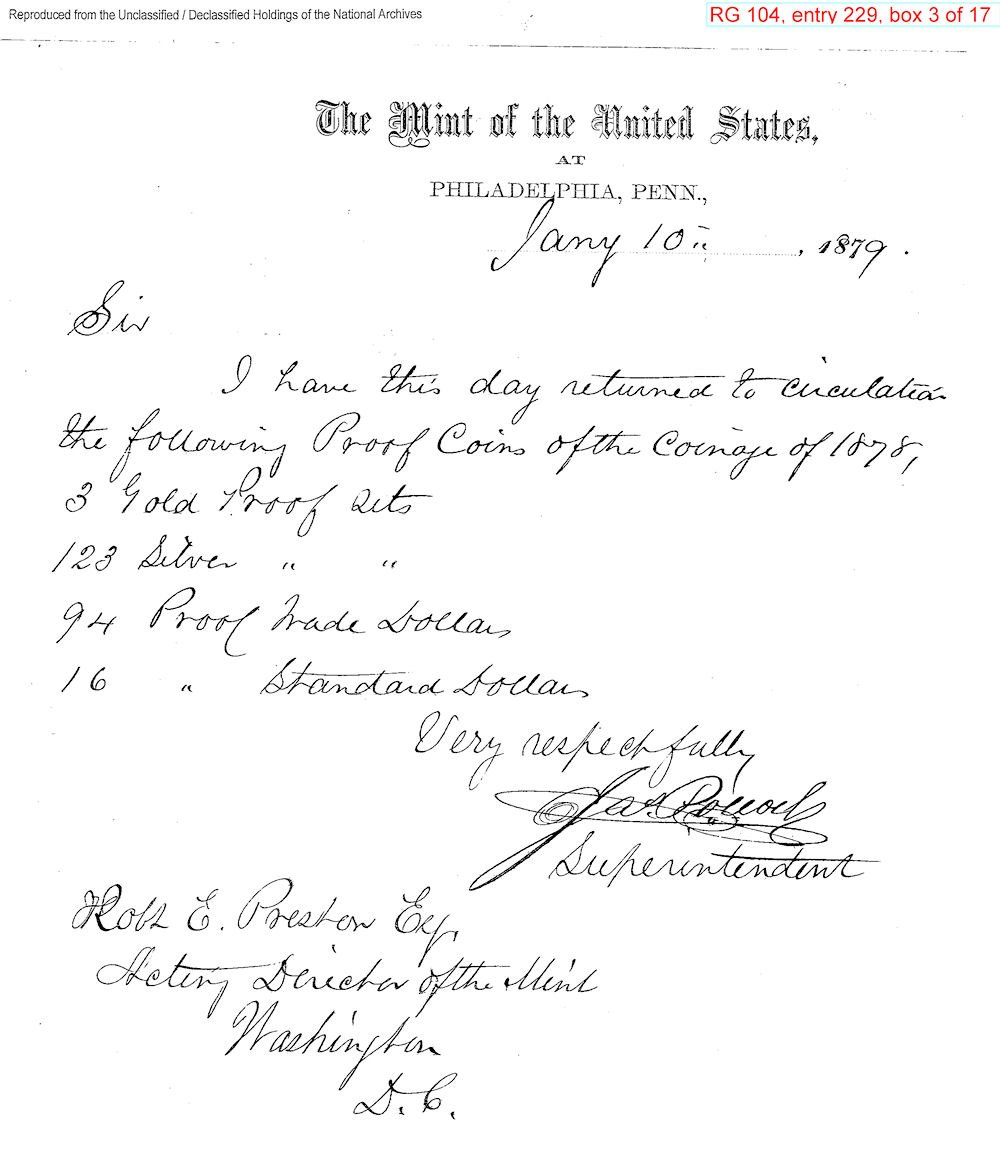 Reproduced from the Unclassified / Declassified Holdings of the National Archives
RG 104, entry 229, box 3 of 17
The Mint of the United States,
AT
PHILADELPHIA, PENN.,
Jany 10", 1879.
Sir
I have this day returned to circulation
the following Proof Coins of the Coinage of 1878,
3 Gold Proof Sets
123 Silver " "
94 Proof Trade Dollars
16 " Standard Dollars
Very respectfully
Jas. Pollock
Superintendent
Robt E. Preston Esq,
Acting Director of the Mint
Washington
D. C.